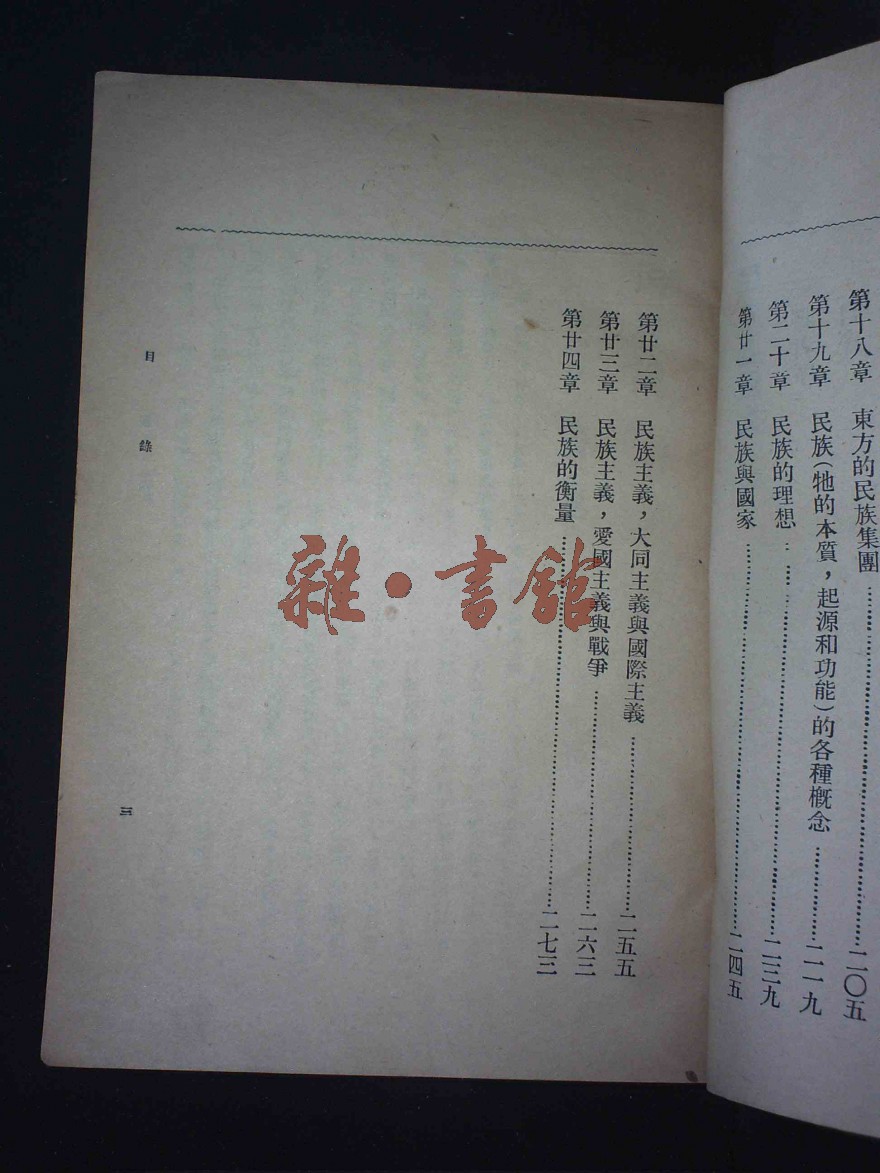 第十八章 東方的民族集團……二〇五
第十九章 民族(牠的本質，起源和功能)的各種概念……二一九
第二十章 民族的理想……二三九
第廿一章 民族與國家……二四五
第廿二章 民族主義，大同主義與國際主義……二五五
第廿三章 民族主義，愛國主義與戰爭……二六三
第廿四章 民族的衡量……二七三
目錄
三
雜·書館